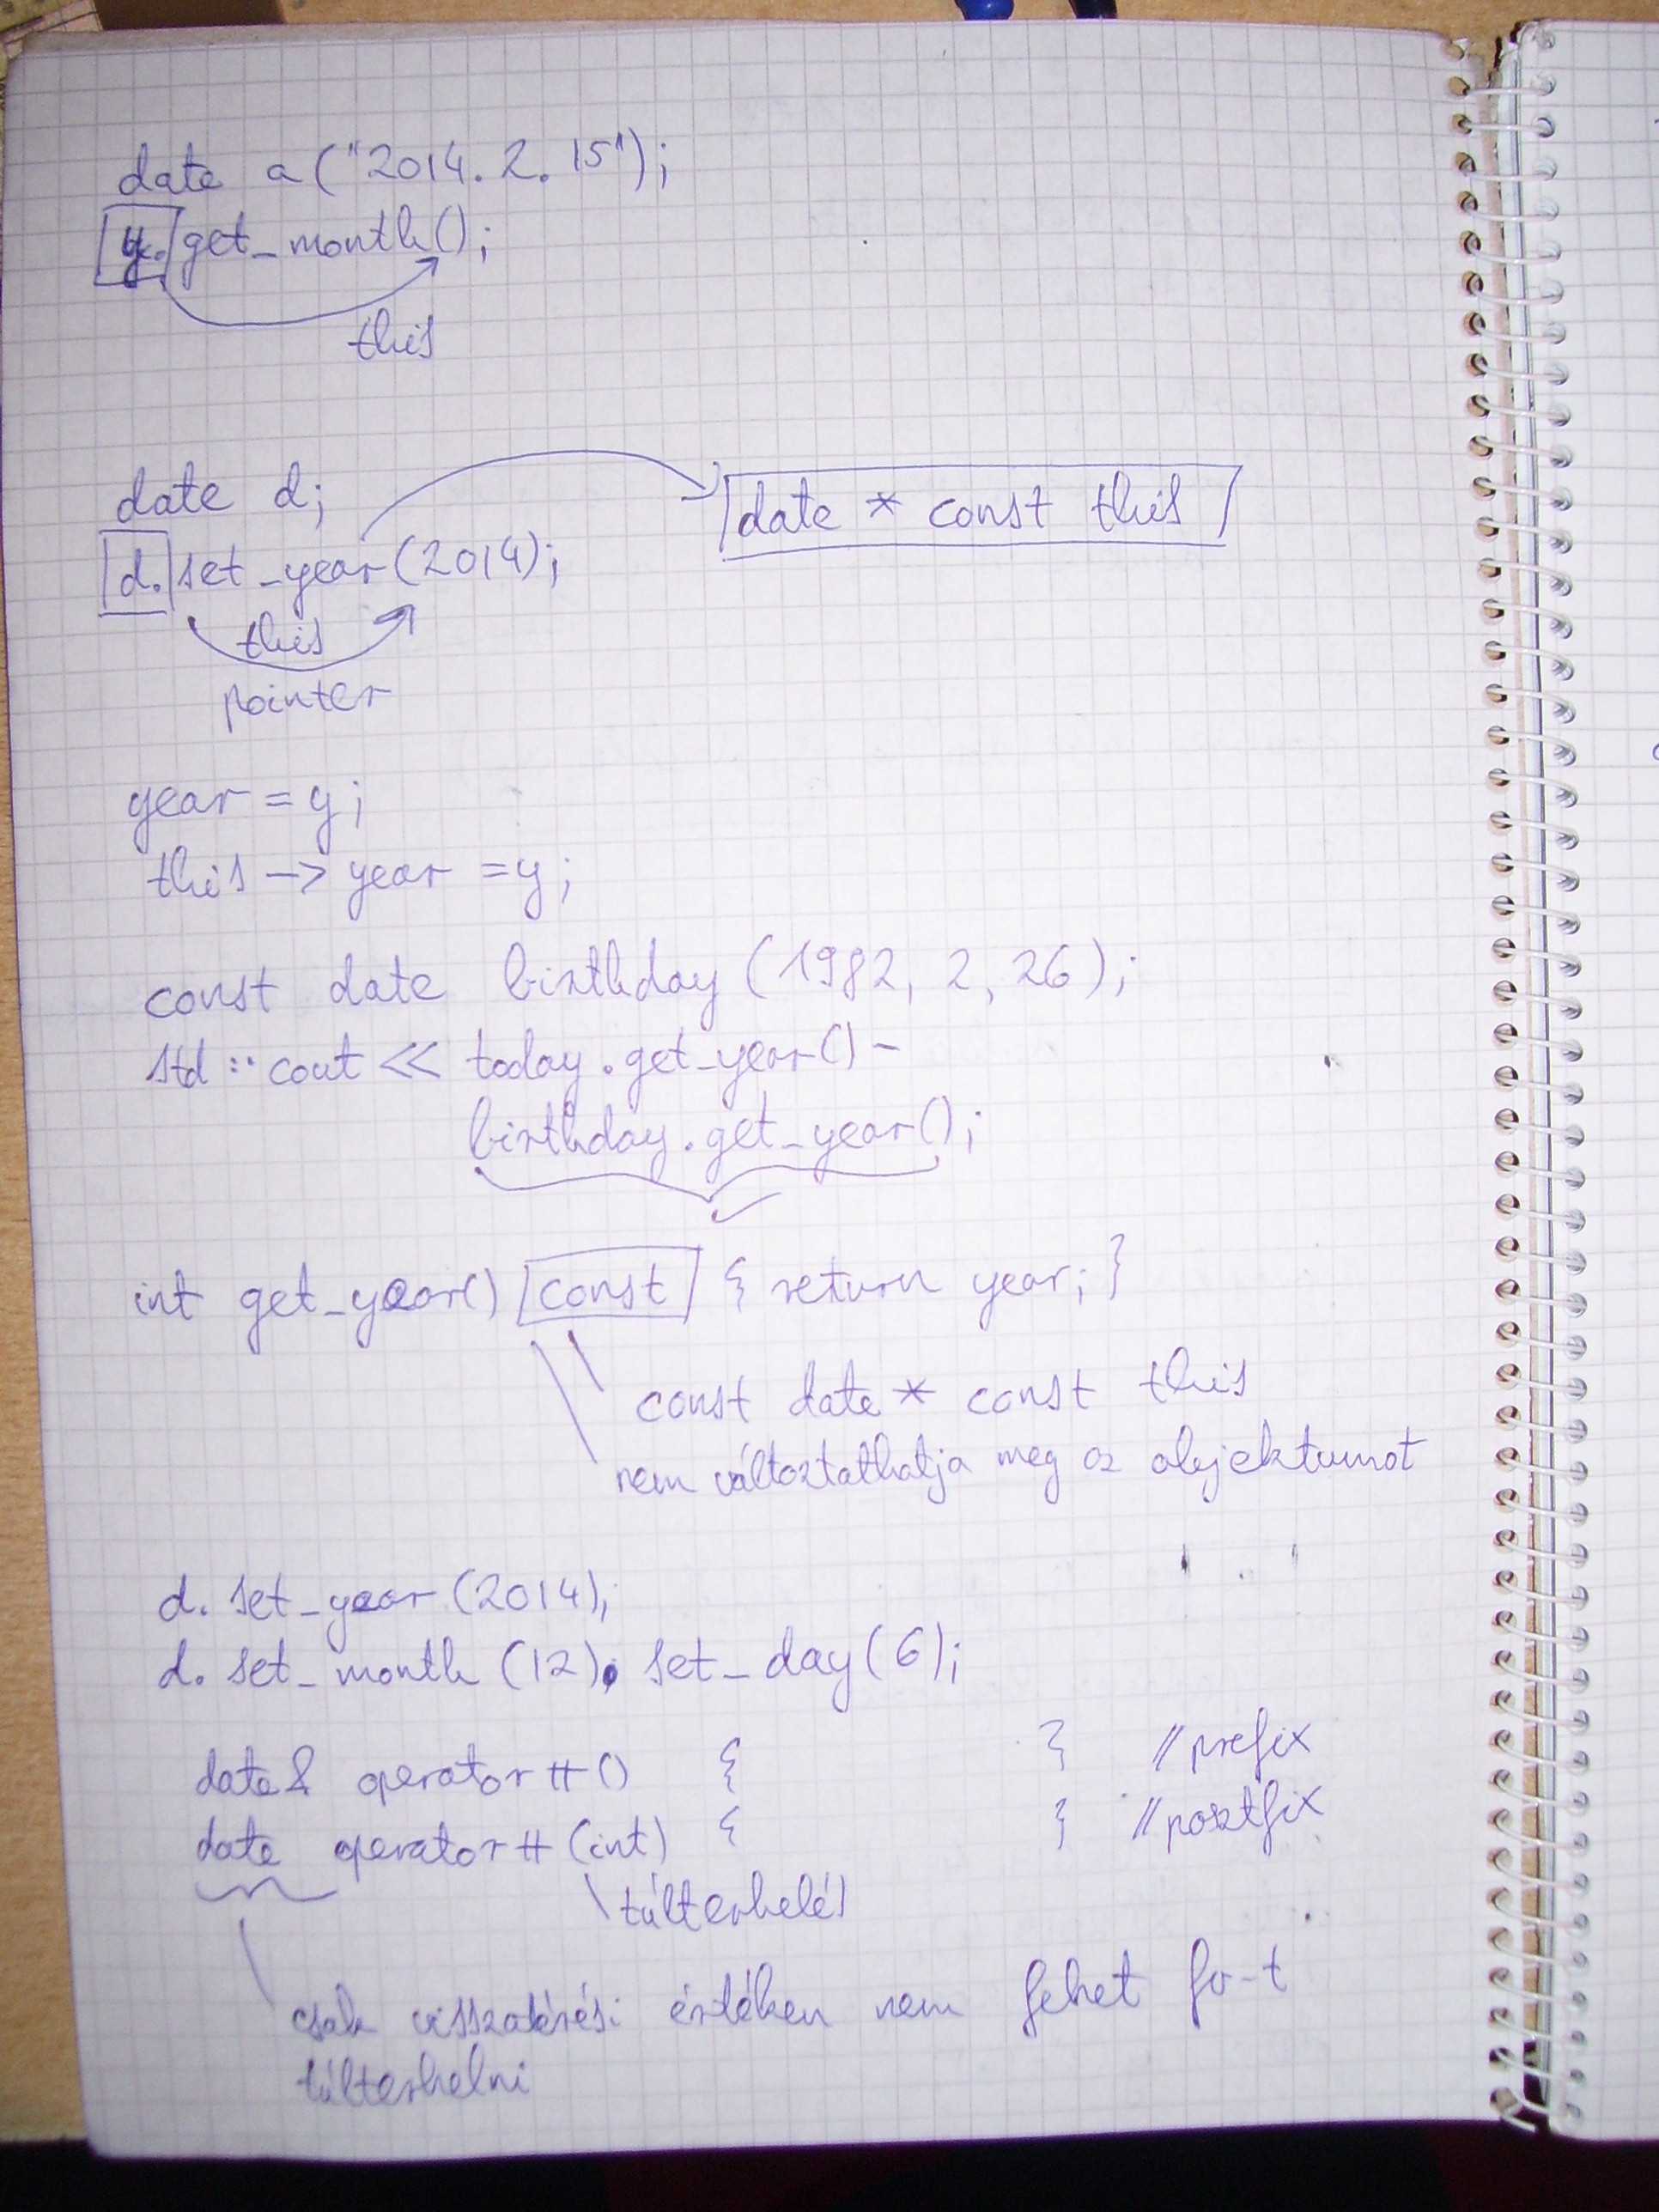 date a("2014. 2. 15");
y. get_month();
this
date d;
date * const this
d. set_year(2014);
this
pointer
year = y;
this -> year = y;
const date birthday (1982, 2, 26);
std :: cout << today.get_year() -
birthday.get_year();
int get_year() const { return year; }
const date * const this
nem változtathatja meg az objektumot
d. set_year (2014);
d. set_month (12). set_day(6);
date& operator++() { } //prefix
date operator++(int) { } //postfix
túlterhelés
csak visszatérési értéken nem lehet fv-t
túlterhelni